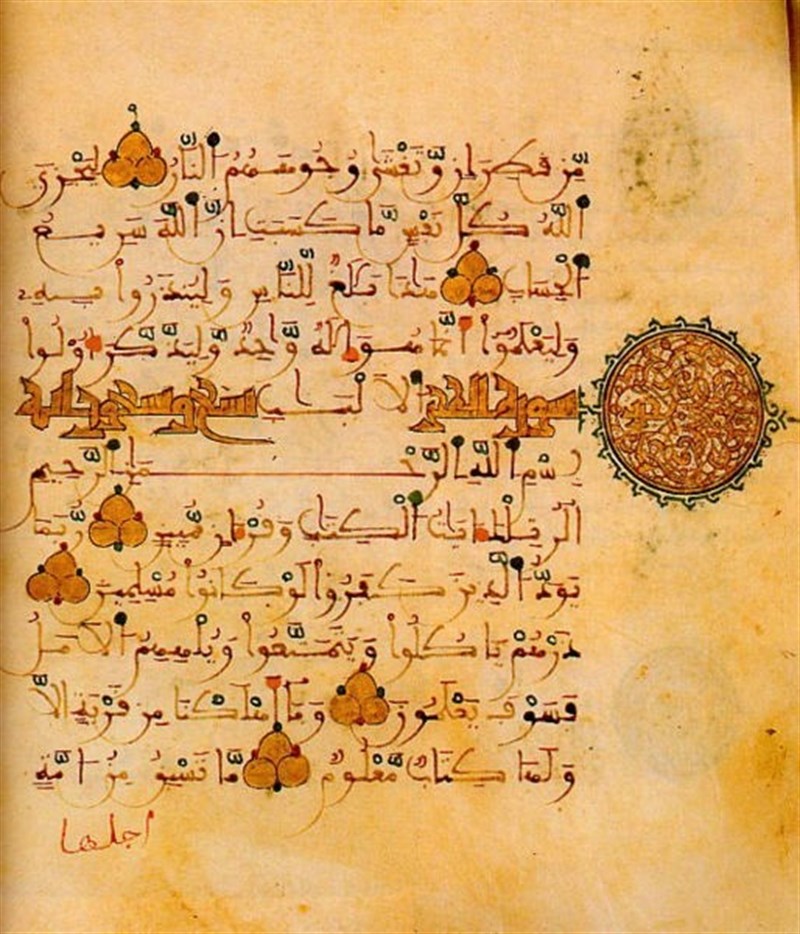 مِّن قَطِرَانٍ وَّتَغْشَىٰ وُجُوهَهُمُ النَّارُ لِيَجْزِيَ
اللَّهُ كُلَّ نَفْسٍ مَّا كَسَبَتِ انَّ اللَّهَ سَرِيعُ
الْحِسَابِ هَٰذَا بَلَٰغٌ لِّلنَّاسِ وَلِيُنذَرُواْ بِهِ
وَلِيَعْلَمُواْ أَنَّمَا هُوَ إِلَٰهٌ وَّاحِدٌ وَّلِيَذَّكَّرَ أُوْلُواْ
سورة الحجر الَالْبَٰبِ تسع وتسعون اية
بِسْمِ اللَّهِ الرَّحْمَٰنِ الرَّحِيمِ
الَرَ تِلْكَ ءَايَٰتُ الْكِتَٰبِ وَقُرْءَانٍ مُّبِينٍ رُّبَمَا
يَوَدُّ الَّذِينَ كَفَرُواْ لَوْ كَانُواْ مُسْلِمِينَ
ذَرْهُمْ يَاكُلُواْ وَيَتَمَتَّعُواْ وَيُلْهِهِمُ الَامَلُ
فَسَوْفَ يَعْلَمُونَ وَمَا أَهْلَكْنَا مِن قَرْيَةٍ الَّا
وَلَهَا كِتَابٌ مَّعْلُومٌ مَّا تَسْبِقُ مِنُ امَّةٍ
اجلها